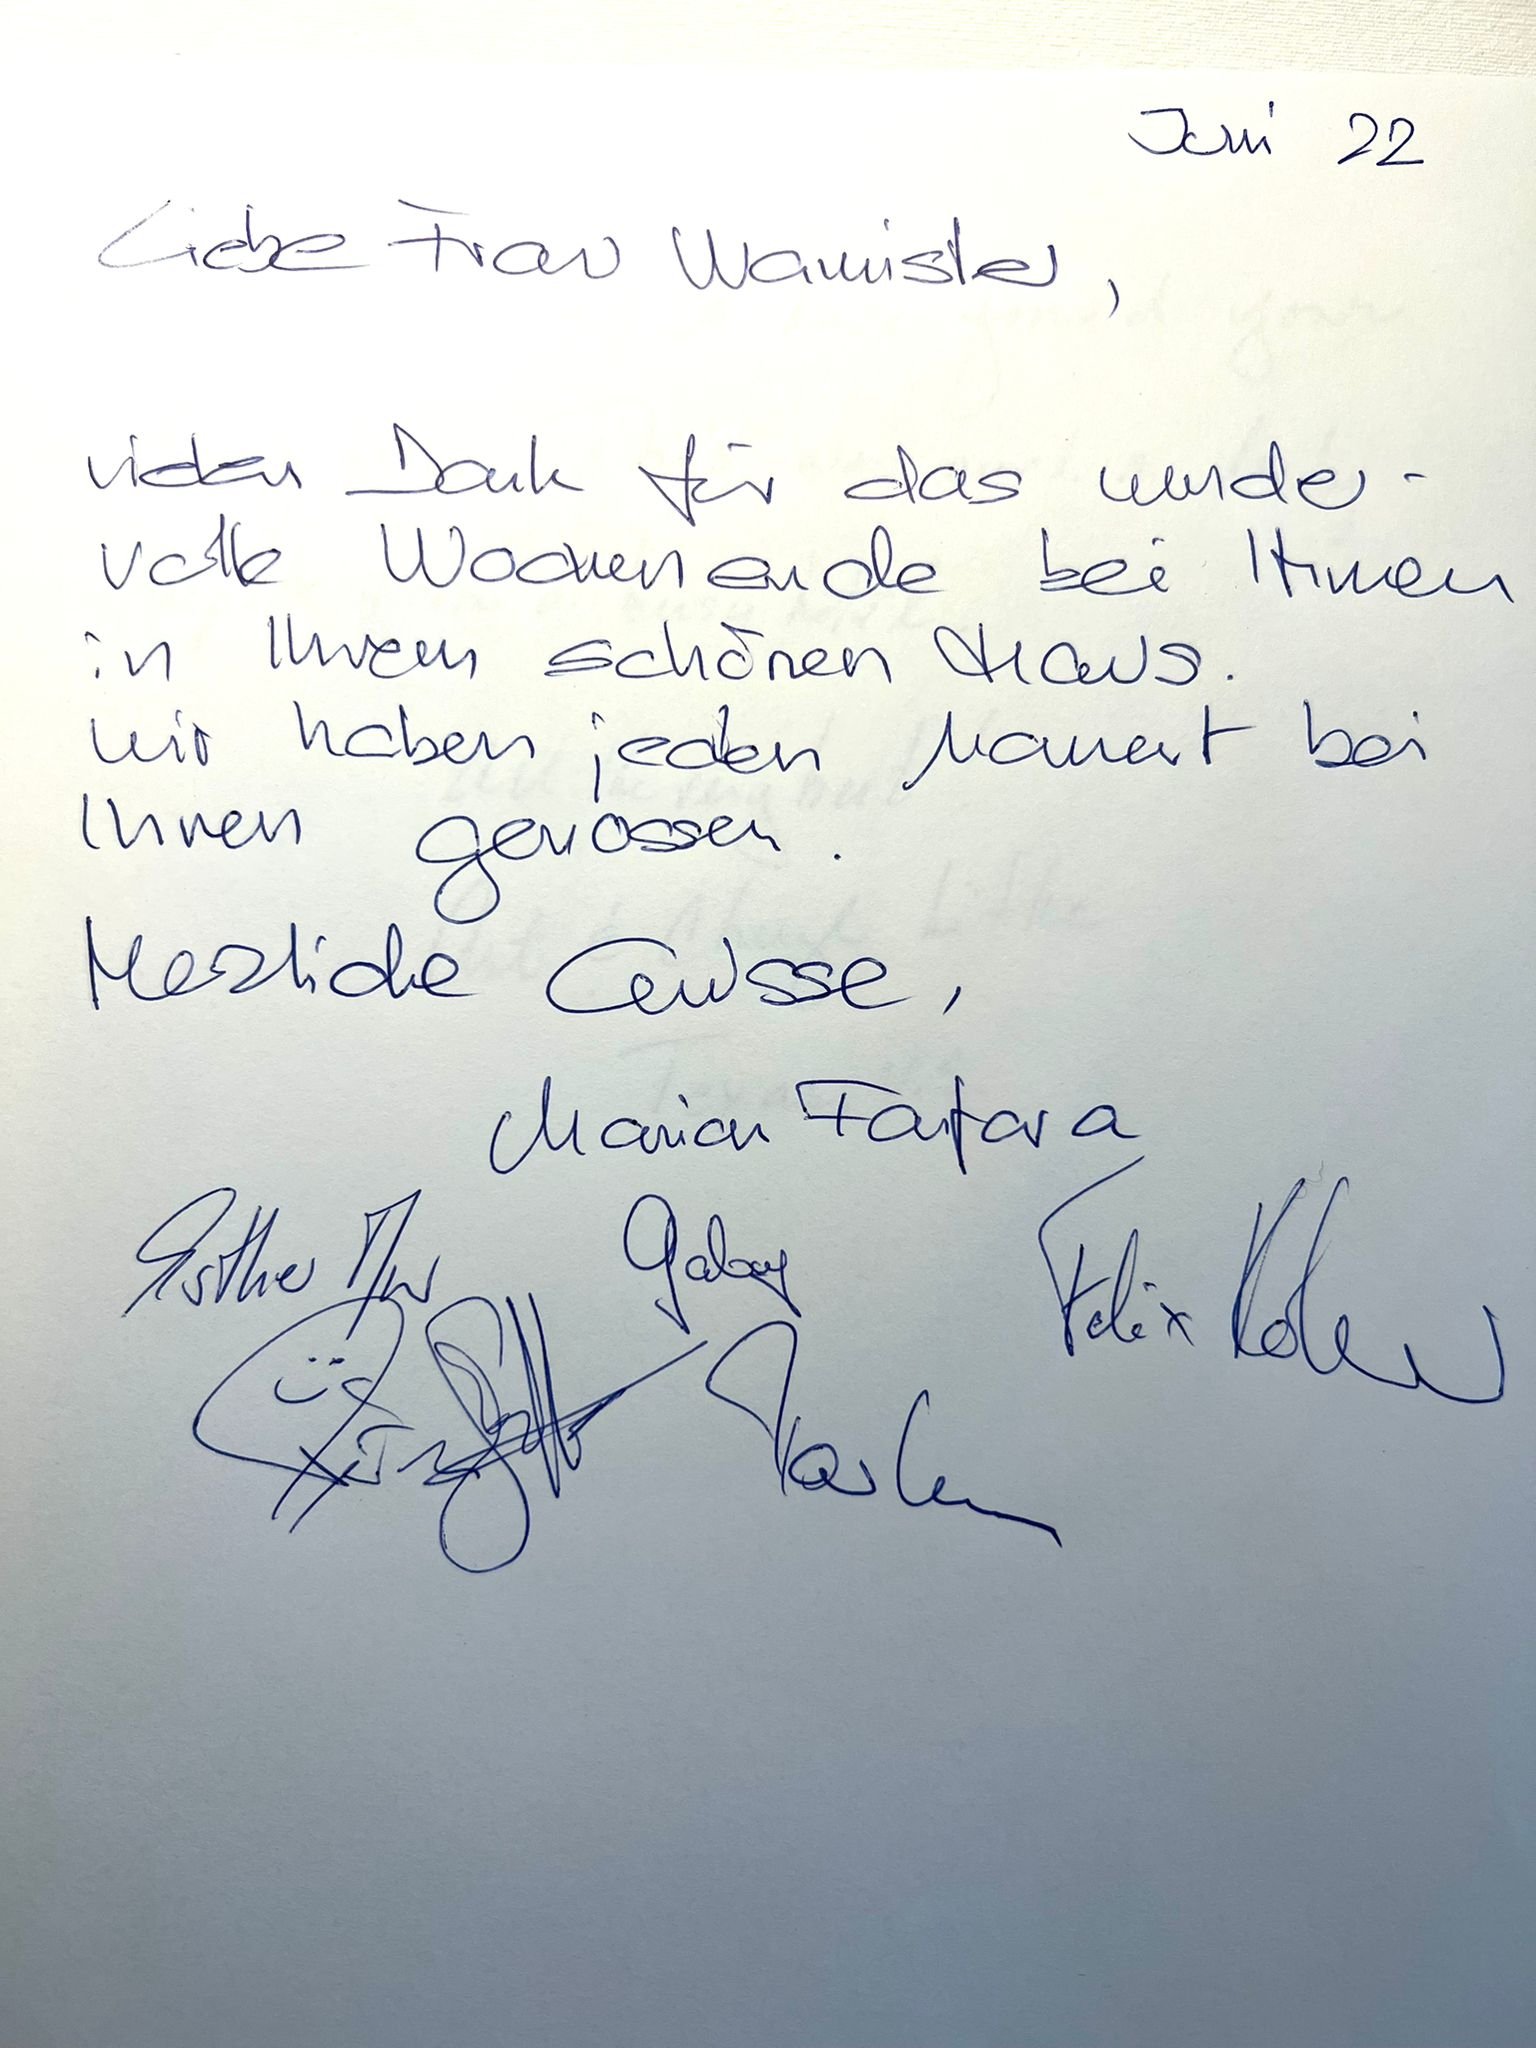 Juni 22
Liebe Frau Wamister,
vielen Dank für das wunder-
volle Wochenende bei Ihnen
in Ihrem schönen Haus.
Wir haben jeden Moment bei
Ihnen genossen.
Herzliche Grüsse,
Marion Fanfara
Esther Gaby Felix